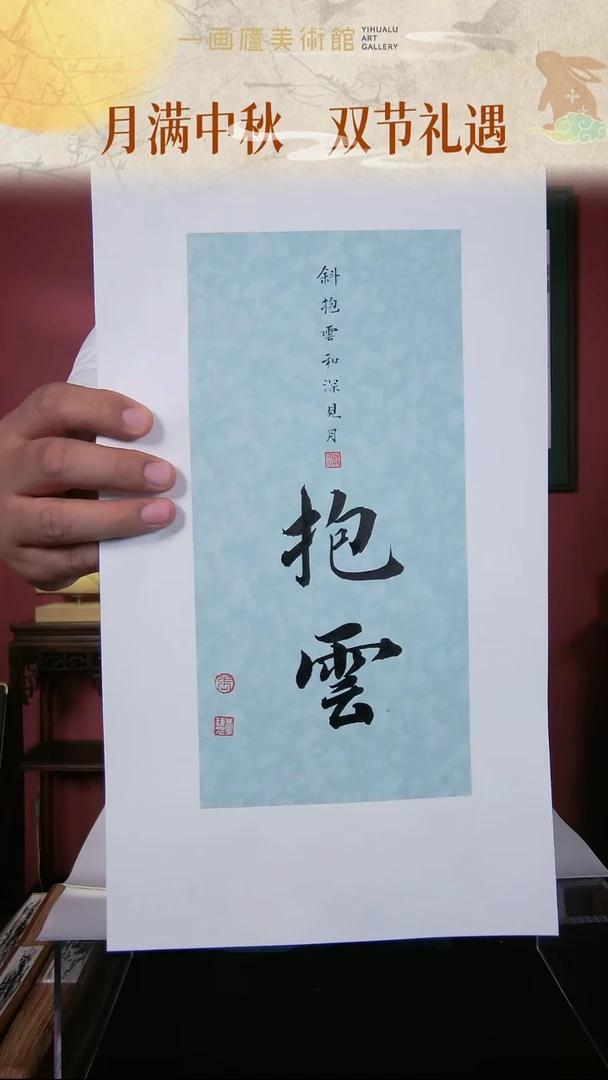 一画廬美術館
YIHUALU
ART
GALLERY
月满中秋 双节礼遇
斜抱雲和深見月
抱雲